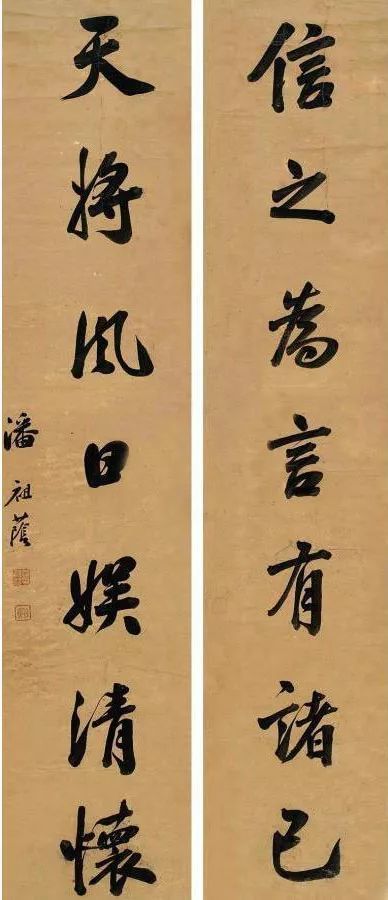 信之為言有諸己
天將風日娱清懷
潘祖蔭